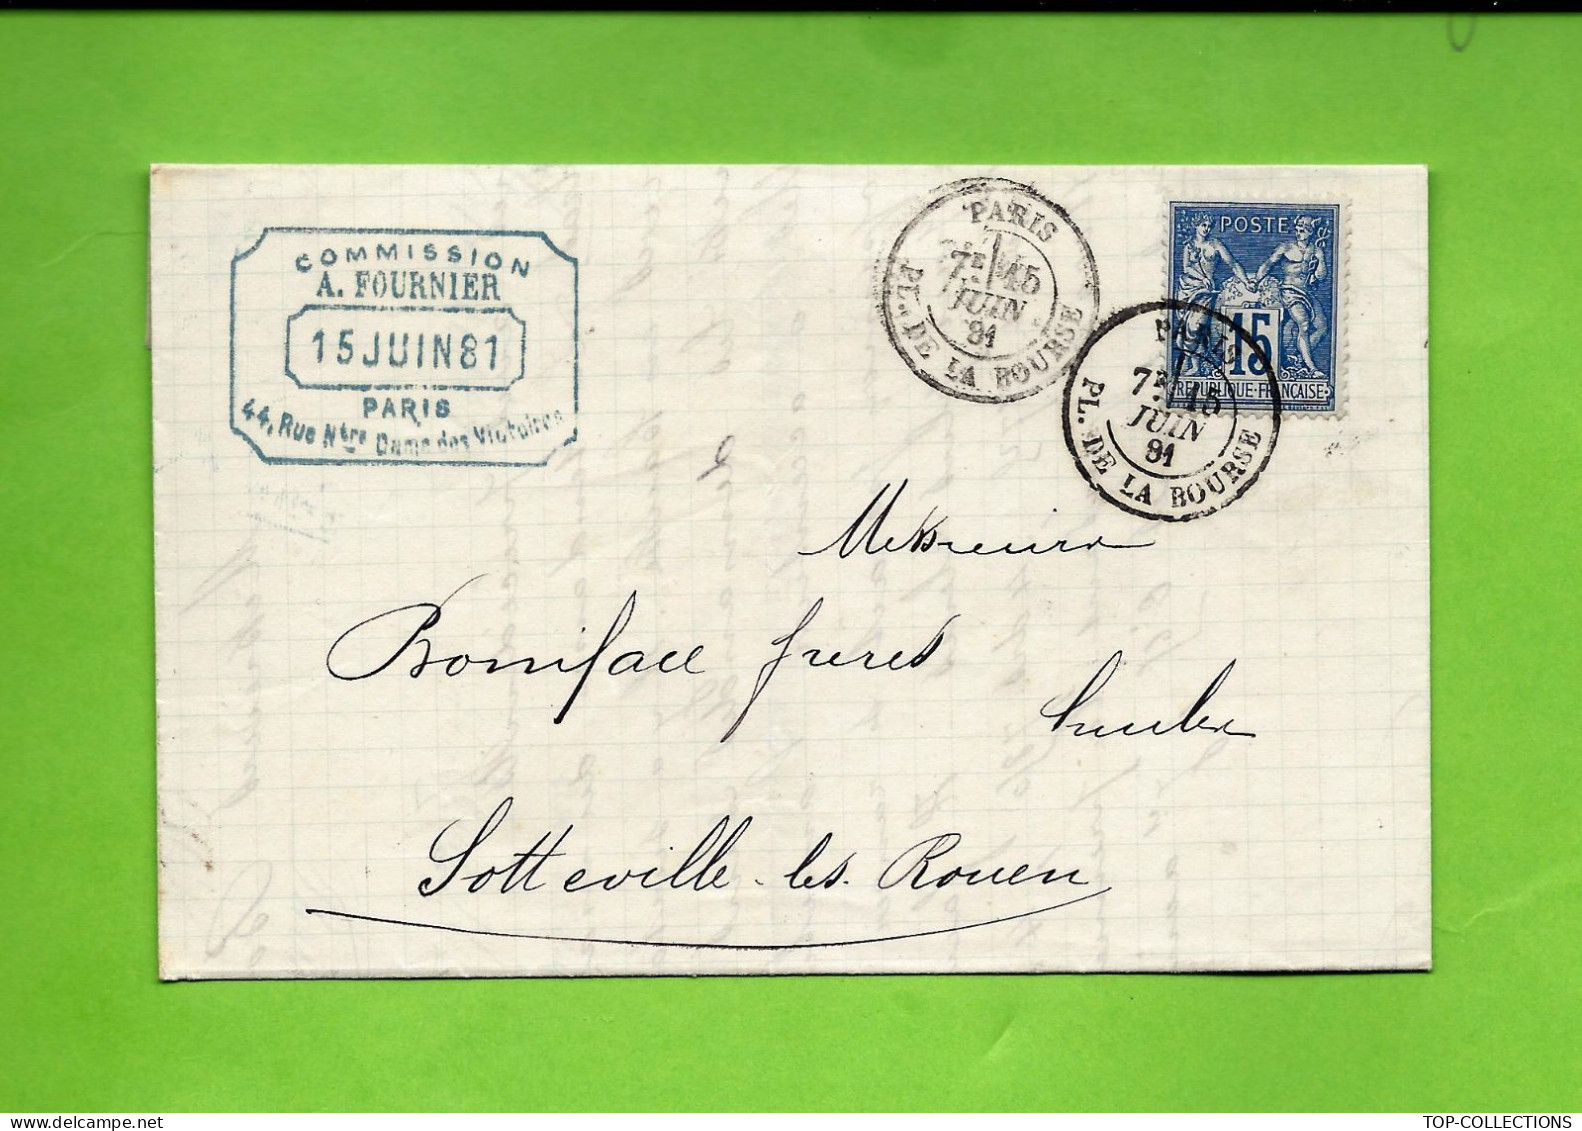 COMMISSION
A. FOURNIER
15 JUIN 81
PARIS
44, Rue Ntre Dame des Victoires
PARIS
7E 15
JUIN
81
PL. DE LA BOURSE
POSTE
15
REPUBLIQUE FRANÇAISE
PARIS
7E 15
JUIN
81
PL. DE LA BOURSE
Messieurs
Boniface frères
Sotteville-les-Rouen
TOP-COLLECTIONS